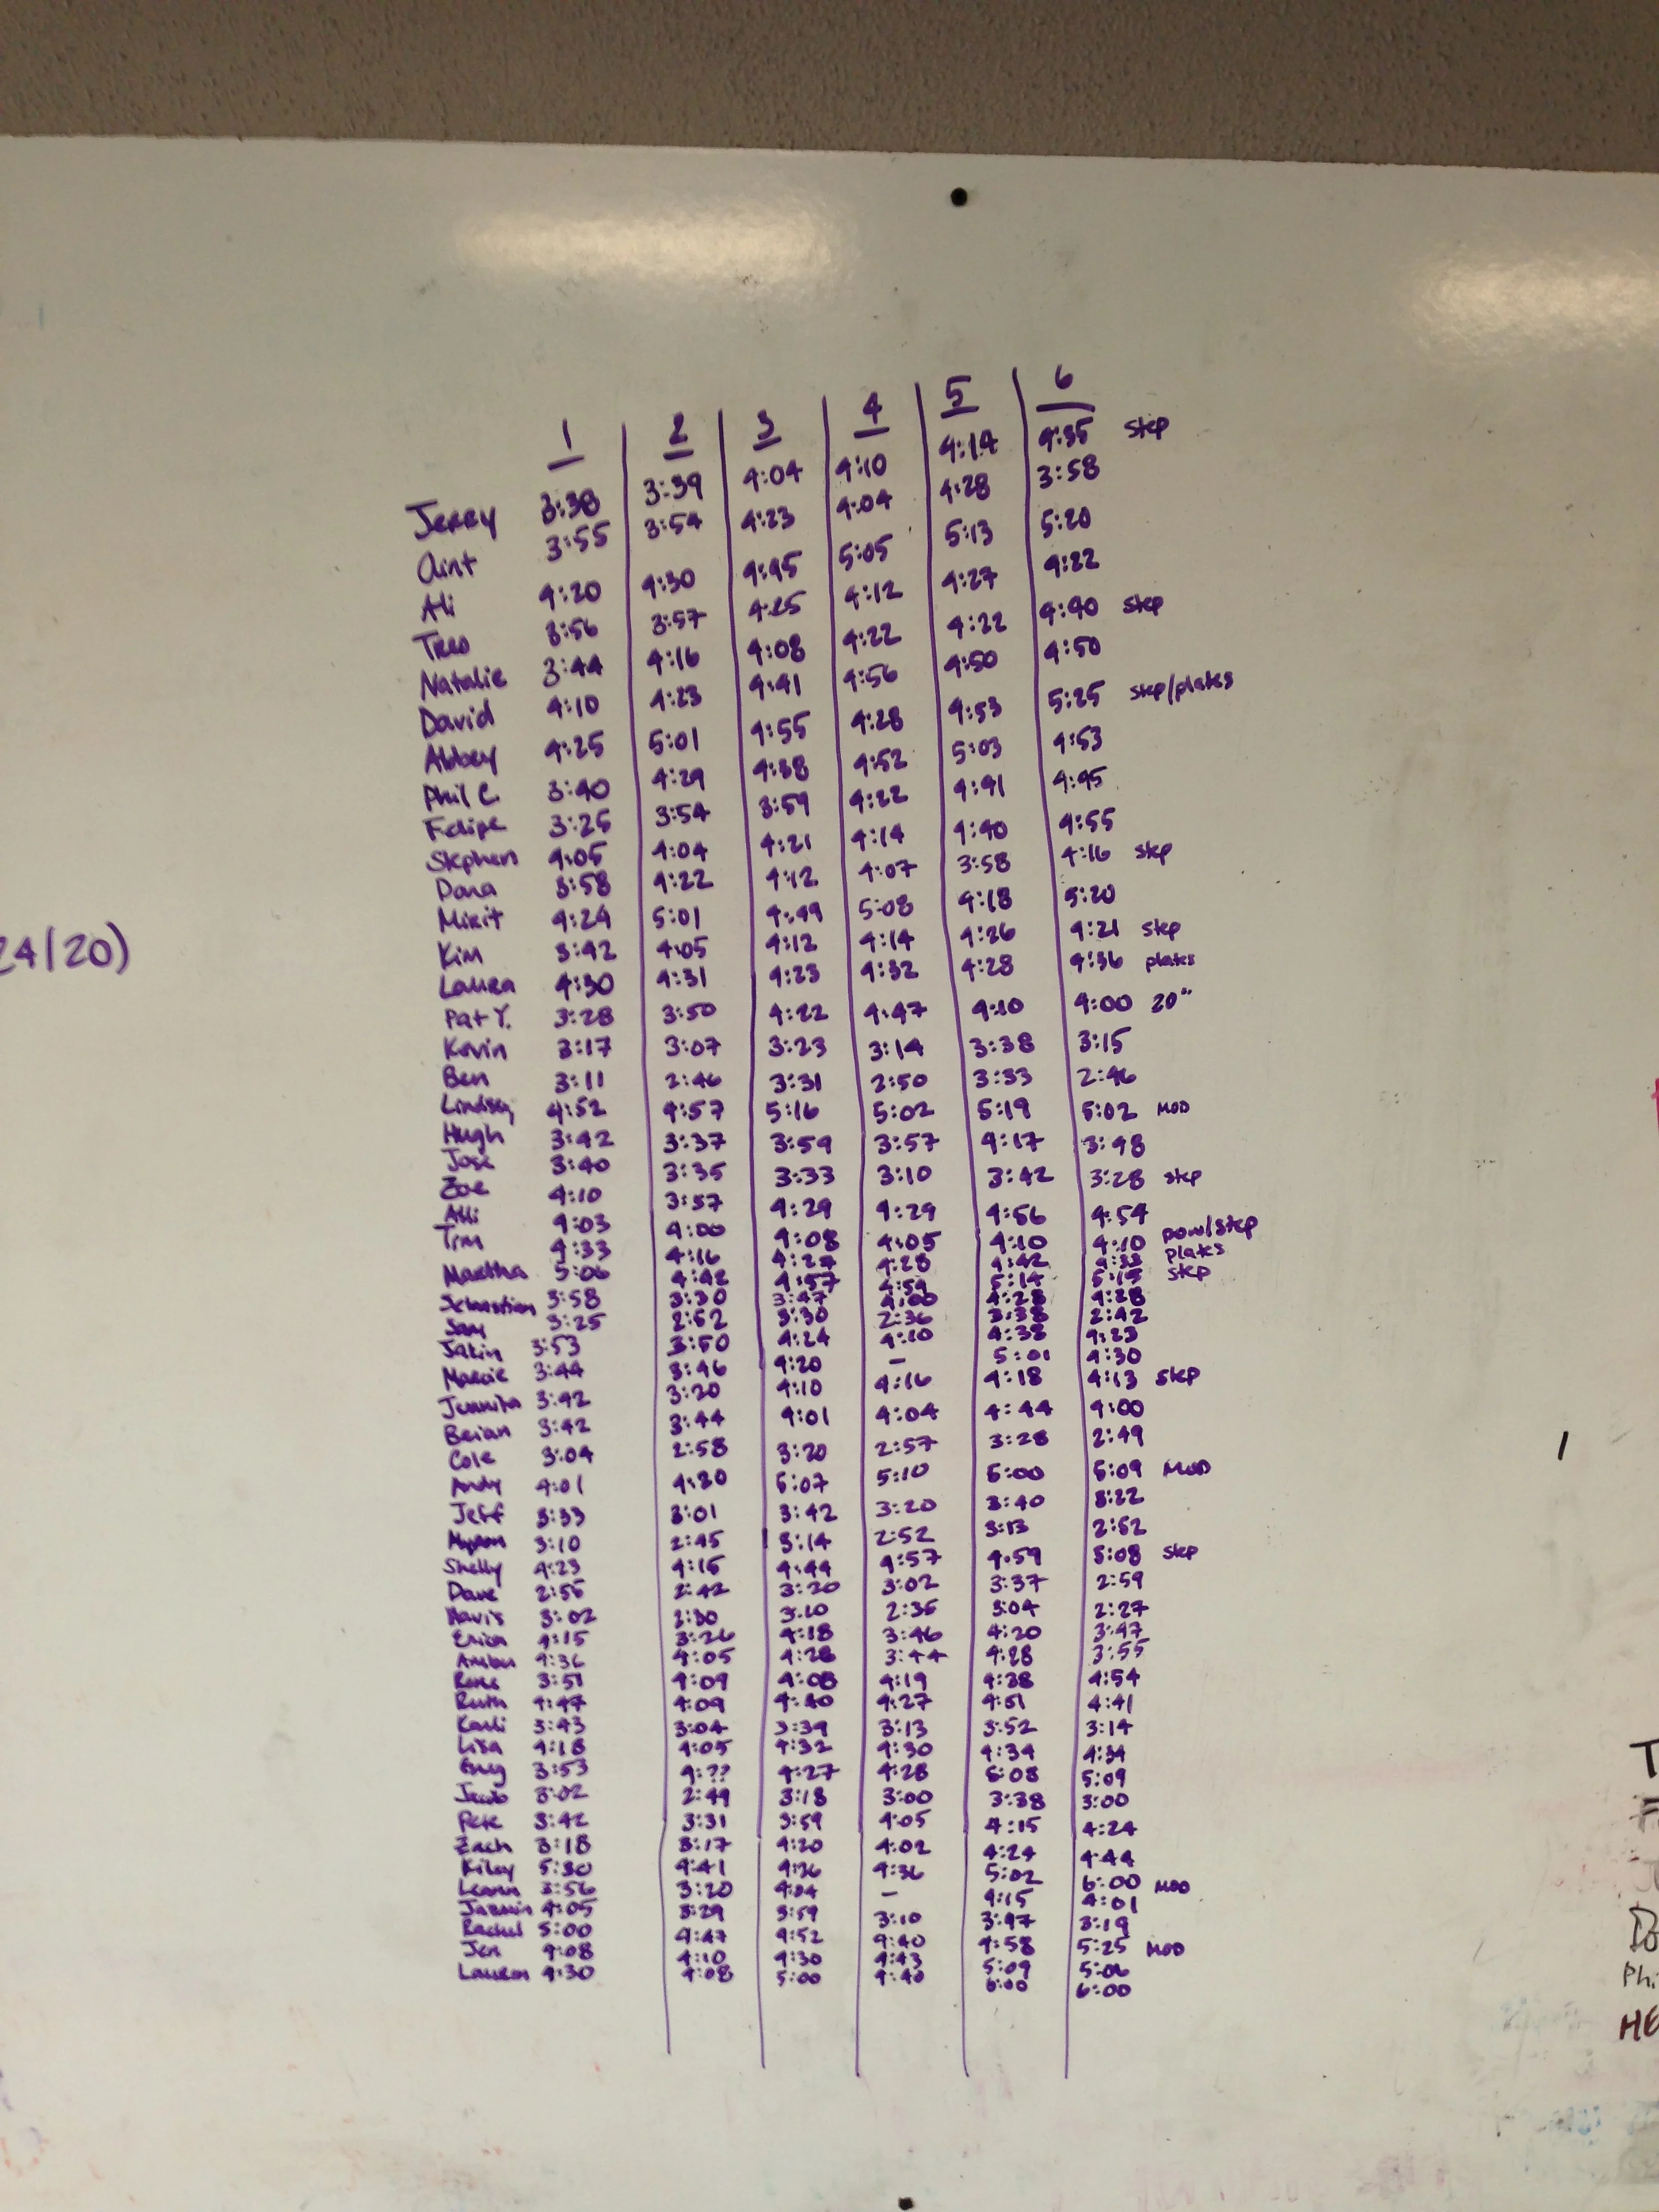 1 2 3 4 5 6
Jerry 3:38 3:39 4:04 4:10 4:14 4:35 step
Clint 3:55 3:54 4:23 4:04 4:28 3:58
Ali 4:20 4:30 4:45 5:05 5:13 5:20
3:56 3:57 4:25 4:12 4:27 4:22
Natalie 3:44 4:16 4:08 4:22 4:22 4:40 step
David 4:10 4:23 4:41 4:56 4:50 4:50
Abbey 4:25 5:01 4:55 4:28 4:53 5:25 step/plates
Phil C. 3:40 4:29 4:38 4:52 5:03 4:53
Felipe 3:25 3:54 3:59 4:22 4:41 4:45
Stephen 4:05 4:04 4:21 4:14 4:40 4:55
Dana 3:58 4:22 4:12 4:07 3:58 4:16 step
4:24 5:01 4:49 5:08 4:18 5:20
Kim 3:42 4:05 4:12 4:14 4:26 4:21 step
24/20)
Laura 4:30 4:31 4:23 4:32 4:28 4:36 plates
Pat Y. 3:28 3:50 4:22 4:47 4:10 4:00 20"
Kevin 3:17 3:07 3:23 3:14 3:38 3:15
Ben 3:11 2:46 3:31 2:50 3:33 2:46
Lindsey 4:52 4:57 5:16 5:02 5:19 5:02 MOD
Hugh 3:42 3:37 3:59 3:57 4:17 3:48
Jose 3:40 3:35 3:33 3:10 3:42 3:28 step
Zoe 4:10 3:57 4:29 4:29 4:56 4:54
Alli 4:03 4:00 4:08 4:05 4:10 4:10 pow/step
Tim 4:33 4:16 4:27 4:28 4:42 4:33 plates
Martha 5:06 4:42 4:57 4:59 5:14 5:15 step
Sebastian 3:58 3:30 3:47 4:00 4:28 4:28
Sam 3:25 2:52 3:30 2:36 3:38 2:42
3:53 3:50 4:24 4:10 4:38 4:23
Marcie 3:44 3:46 4:20 – 5:01 4:30
3:42 3:20 4:10 4:16 4:18 4:13 step
Brian 3:42 3:44 4:01 4:04 4:44 4:00
Cole 3:04 2:58 3:20 2:57 3:28 2:49
Andy 4:01 4:30 5:07 5:10 5:00 5:09 MOD
Jeff 3:33 3:01 3:42 3:20 3:40 3:22
3:10 2:45 3:14 2:52 3:13 2:52
Shelly 4:23 4:15 4:44 4:57 4:59 5:08 step
Dave 2:55 2:42 3:20 3:02 3:37 2:59
3:02 2:30 3:10 2:35 3:04 2:27
Erica 4:15 3:26 4:18 3:46 4:20 3:47
Amber 4:36 4:05 4:28 3:44 4:28 3:55
3:51 4:09 4:08 4:19 4:38 4:54
Ruth 4:47 4:09 4:40 4:27 4:51 4:41
Karli 3:43 3:04 3:39 3:13 3:52 3:14
Lisa 4:18 4:05 4:32 4:30 4:34 4:34
3:53 4:?? 4:27 4:28 5:08 5:09
Jacob 3:02 2:49 3:18 3:00 3:38 3:00
Pete 3:42 3:31 3:59 4:05 4:15 4:24
Zach 3:18 3:17 4:20 4:02 4:24 4:44
Kiley 5:30 4:41 4:36 4:36 5:02 6:00 MOD
Leann 3:56 3:20 4:04 – 4:15 4:01
Jazmin 4:05 3:29 3:59 3:10 3:47 3:19
Rachel 5:00 4:47 4:52 4:40 4:58 5:25 MOD
Jen 4:08 4:10 4:30 4:43 5:09 5:06
Lauren 4:30 4:08 5:00 4:40 6:00 6:00